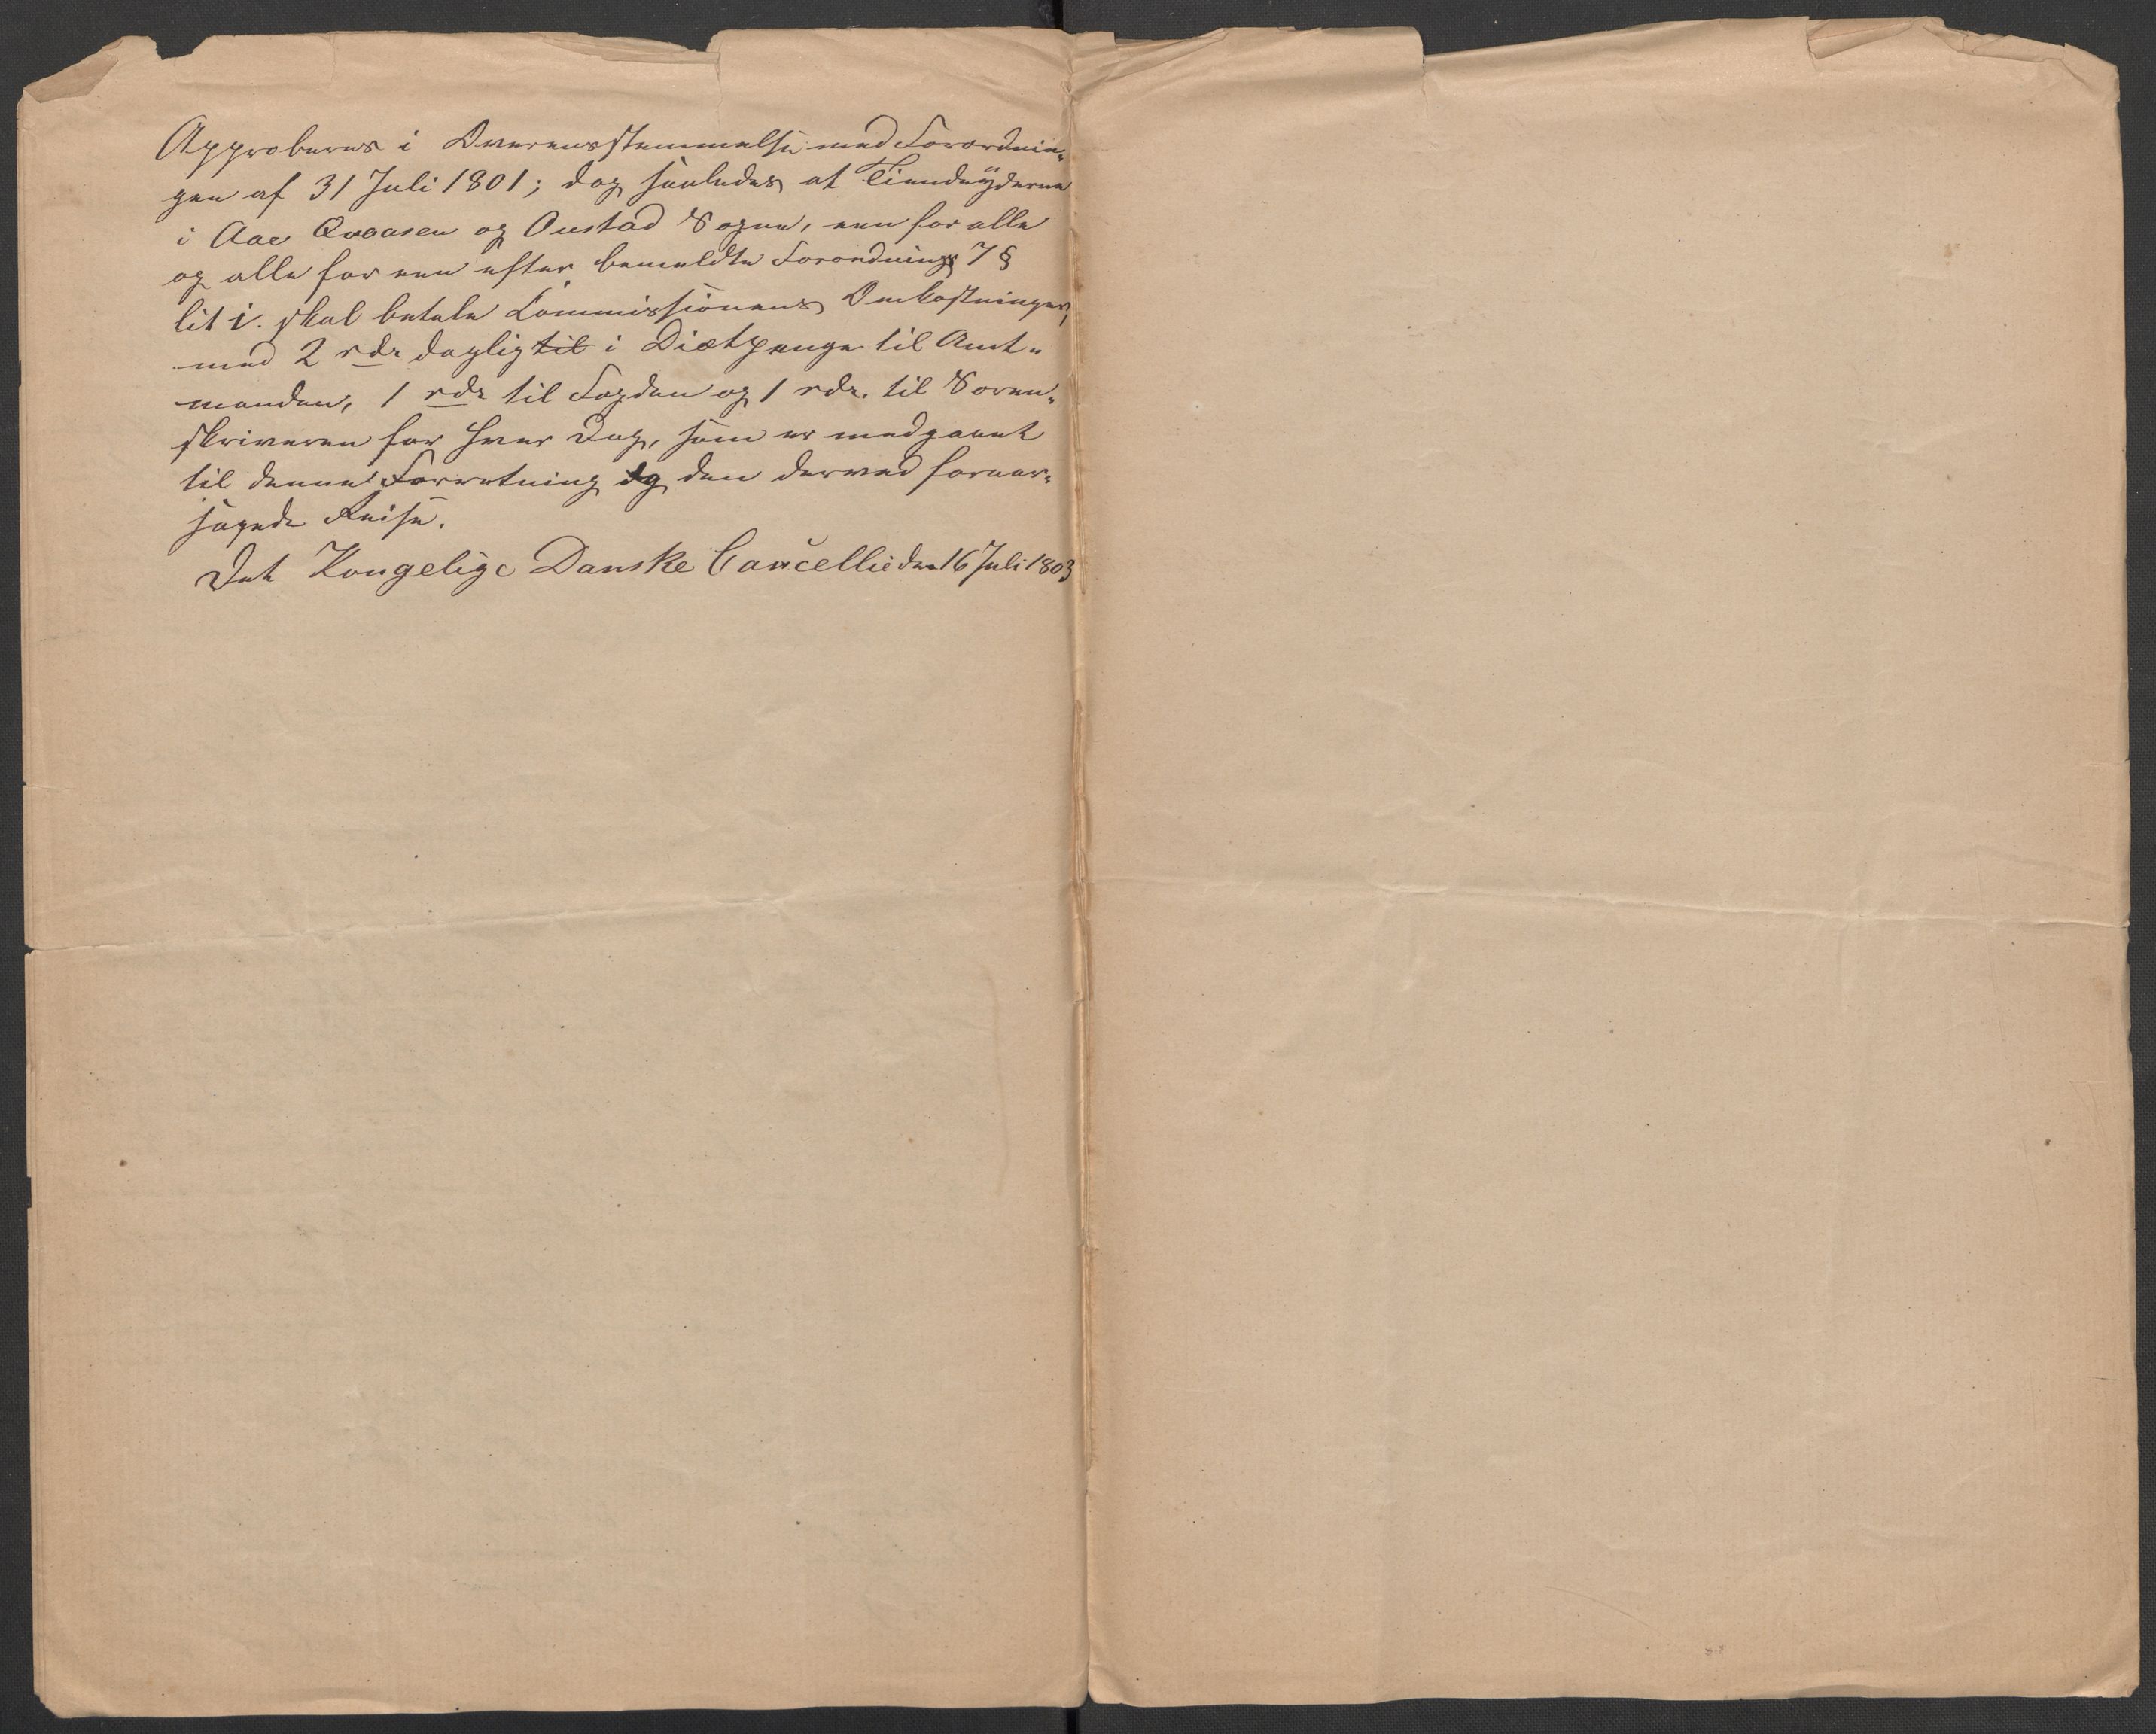 Approberes i Overensstemmelse med Forordnin„
gen af 31 Juli 1801; dog saaledes at Tiendeÿderne
i Aae Qvaasen og Oustad Sogne, een for alle
og alle for een efter bemeldte Forordnings 7 §
lit i. skal betale Commissionens Omkostninger,
med 2 rdr daglig til i Diætpenge til Amt„
manden, 1 rdr til Fogden og 1 rdr. til Soren„
skriveren for hver Dag, som er medgaaet
til denne Forretning og den derved foraar„
sagede Reise.
Det Kongelige Danske Cancellie den 16 Juli 1803